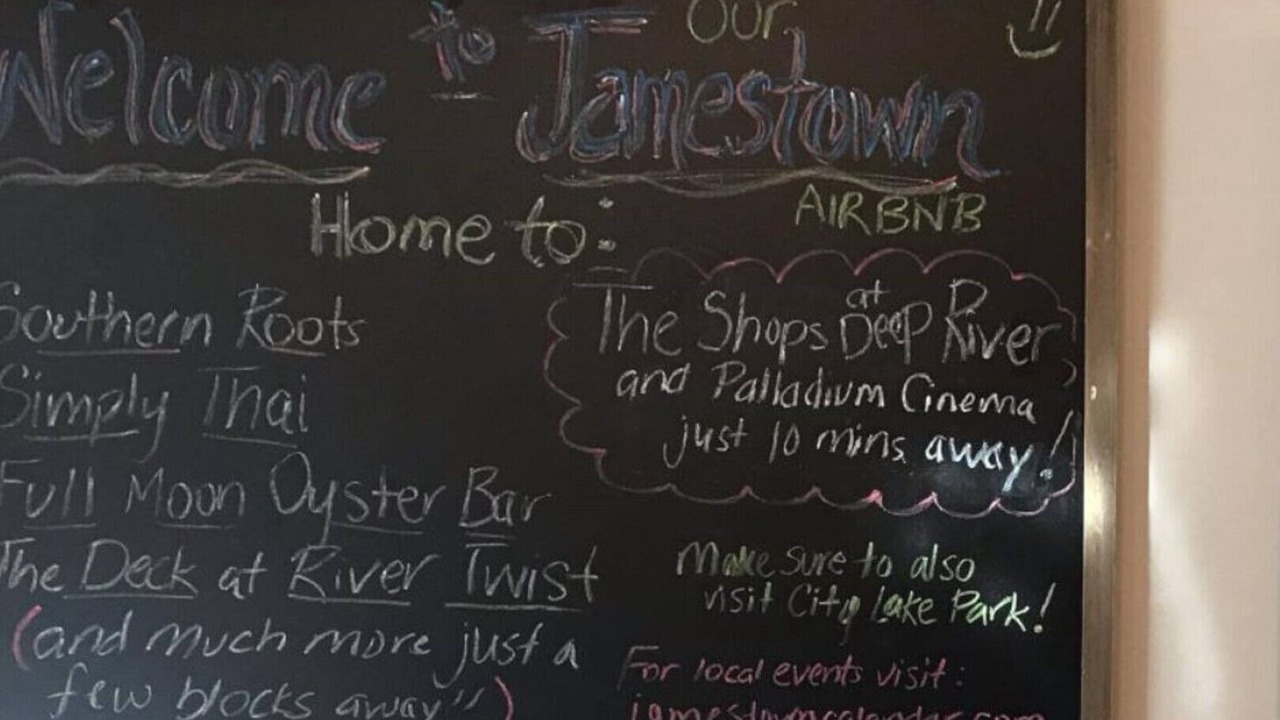 Welcome to Our Jamestown
AIRBNB
Home to:
Southern Roots
Simply Thai
Full Moon Oyster Bar
The Deck at River Twist
(and much more just a
few blocks away")
The Shops at Deep River
and Palladium Cinema
just 10 mins away!
Make sure to also
visit City Lake Park!
For local events visit:
jamestowncalander.com